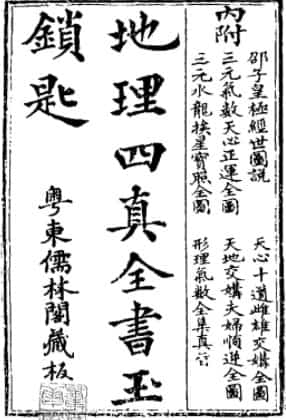 內附
邵子皇極經世圖說
三元氣數天心正運全圖
三元水龍挨星寶照全圖
天心十道雌雄交媾全圖
天地交媾夫婦順逆全圖
形理氣數全集真旨
地理四真全書玉
鎖匙
粵東儒林閣藏板